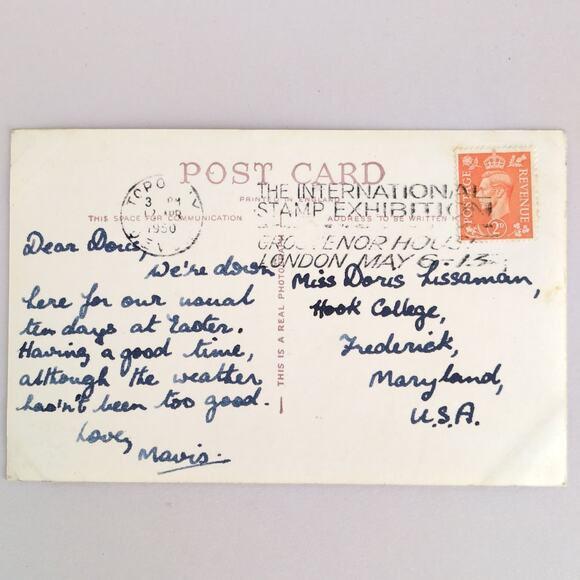 POST CARD
PRINTED IN ENGLAND
THIS SPACE FOR COMMUNICATION
ADDRESS TO BE WRITTEN H
3 PM
APR
1950
THE INTERNATIONAL
STAMP EXHIBITION
GROSVENOR HOUSE
LONDON MAY 6-13
POSTAGE
REVENUE
2D
Dear Doris,
We're down
here for our usual
ten days at Easter.
Having a good time,
although the weather
hasn't been too good.
Love,
Mavis.
THIS IS A REAL PHOTO
Miss Doris Lissaman,
Hook College,
Frederick,
Maryland,
U.S.A.